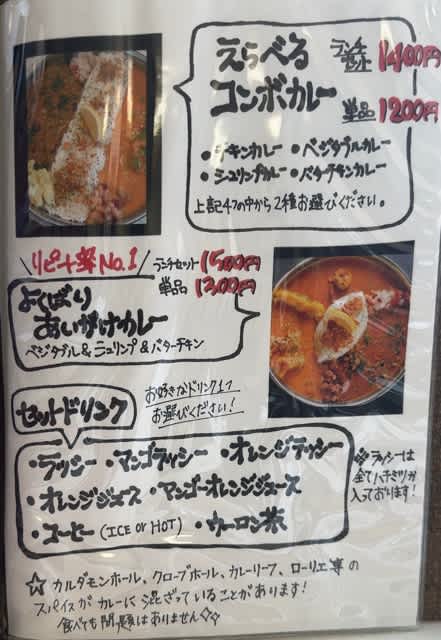 えらべる
コンボカレー
ランチセット 1400円
単品 1200円
・チキンカレー ・ベジタブルカレー
・シュリンプカレー ・バターチキンカレー
上記4つの中から2種お選びください。
リピート率No.1
ランチセット 1500円
単品 1300円
よくばり
あいがけカレー
ベジタブル&シュリンプ&バターチキン
セットドリンク
お好きなドリンク1つ
お選びください!
・ラッシー ・マンゴラッシー ・オレンジラッシー
・オレンジジュース ・マンゴーオレンジジュース
・コーヒー (ICE or HOT) ・ウーロン茶
※ラッシーは
全てハチミツが
入っております!
☆ カルダモンホール、クローブホール、カレーリーフ、ローリエ等の
スパイスがカレーに混ざっていることがあります!
食べても問題はありません